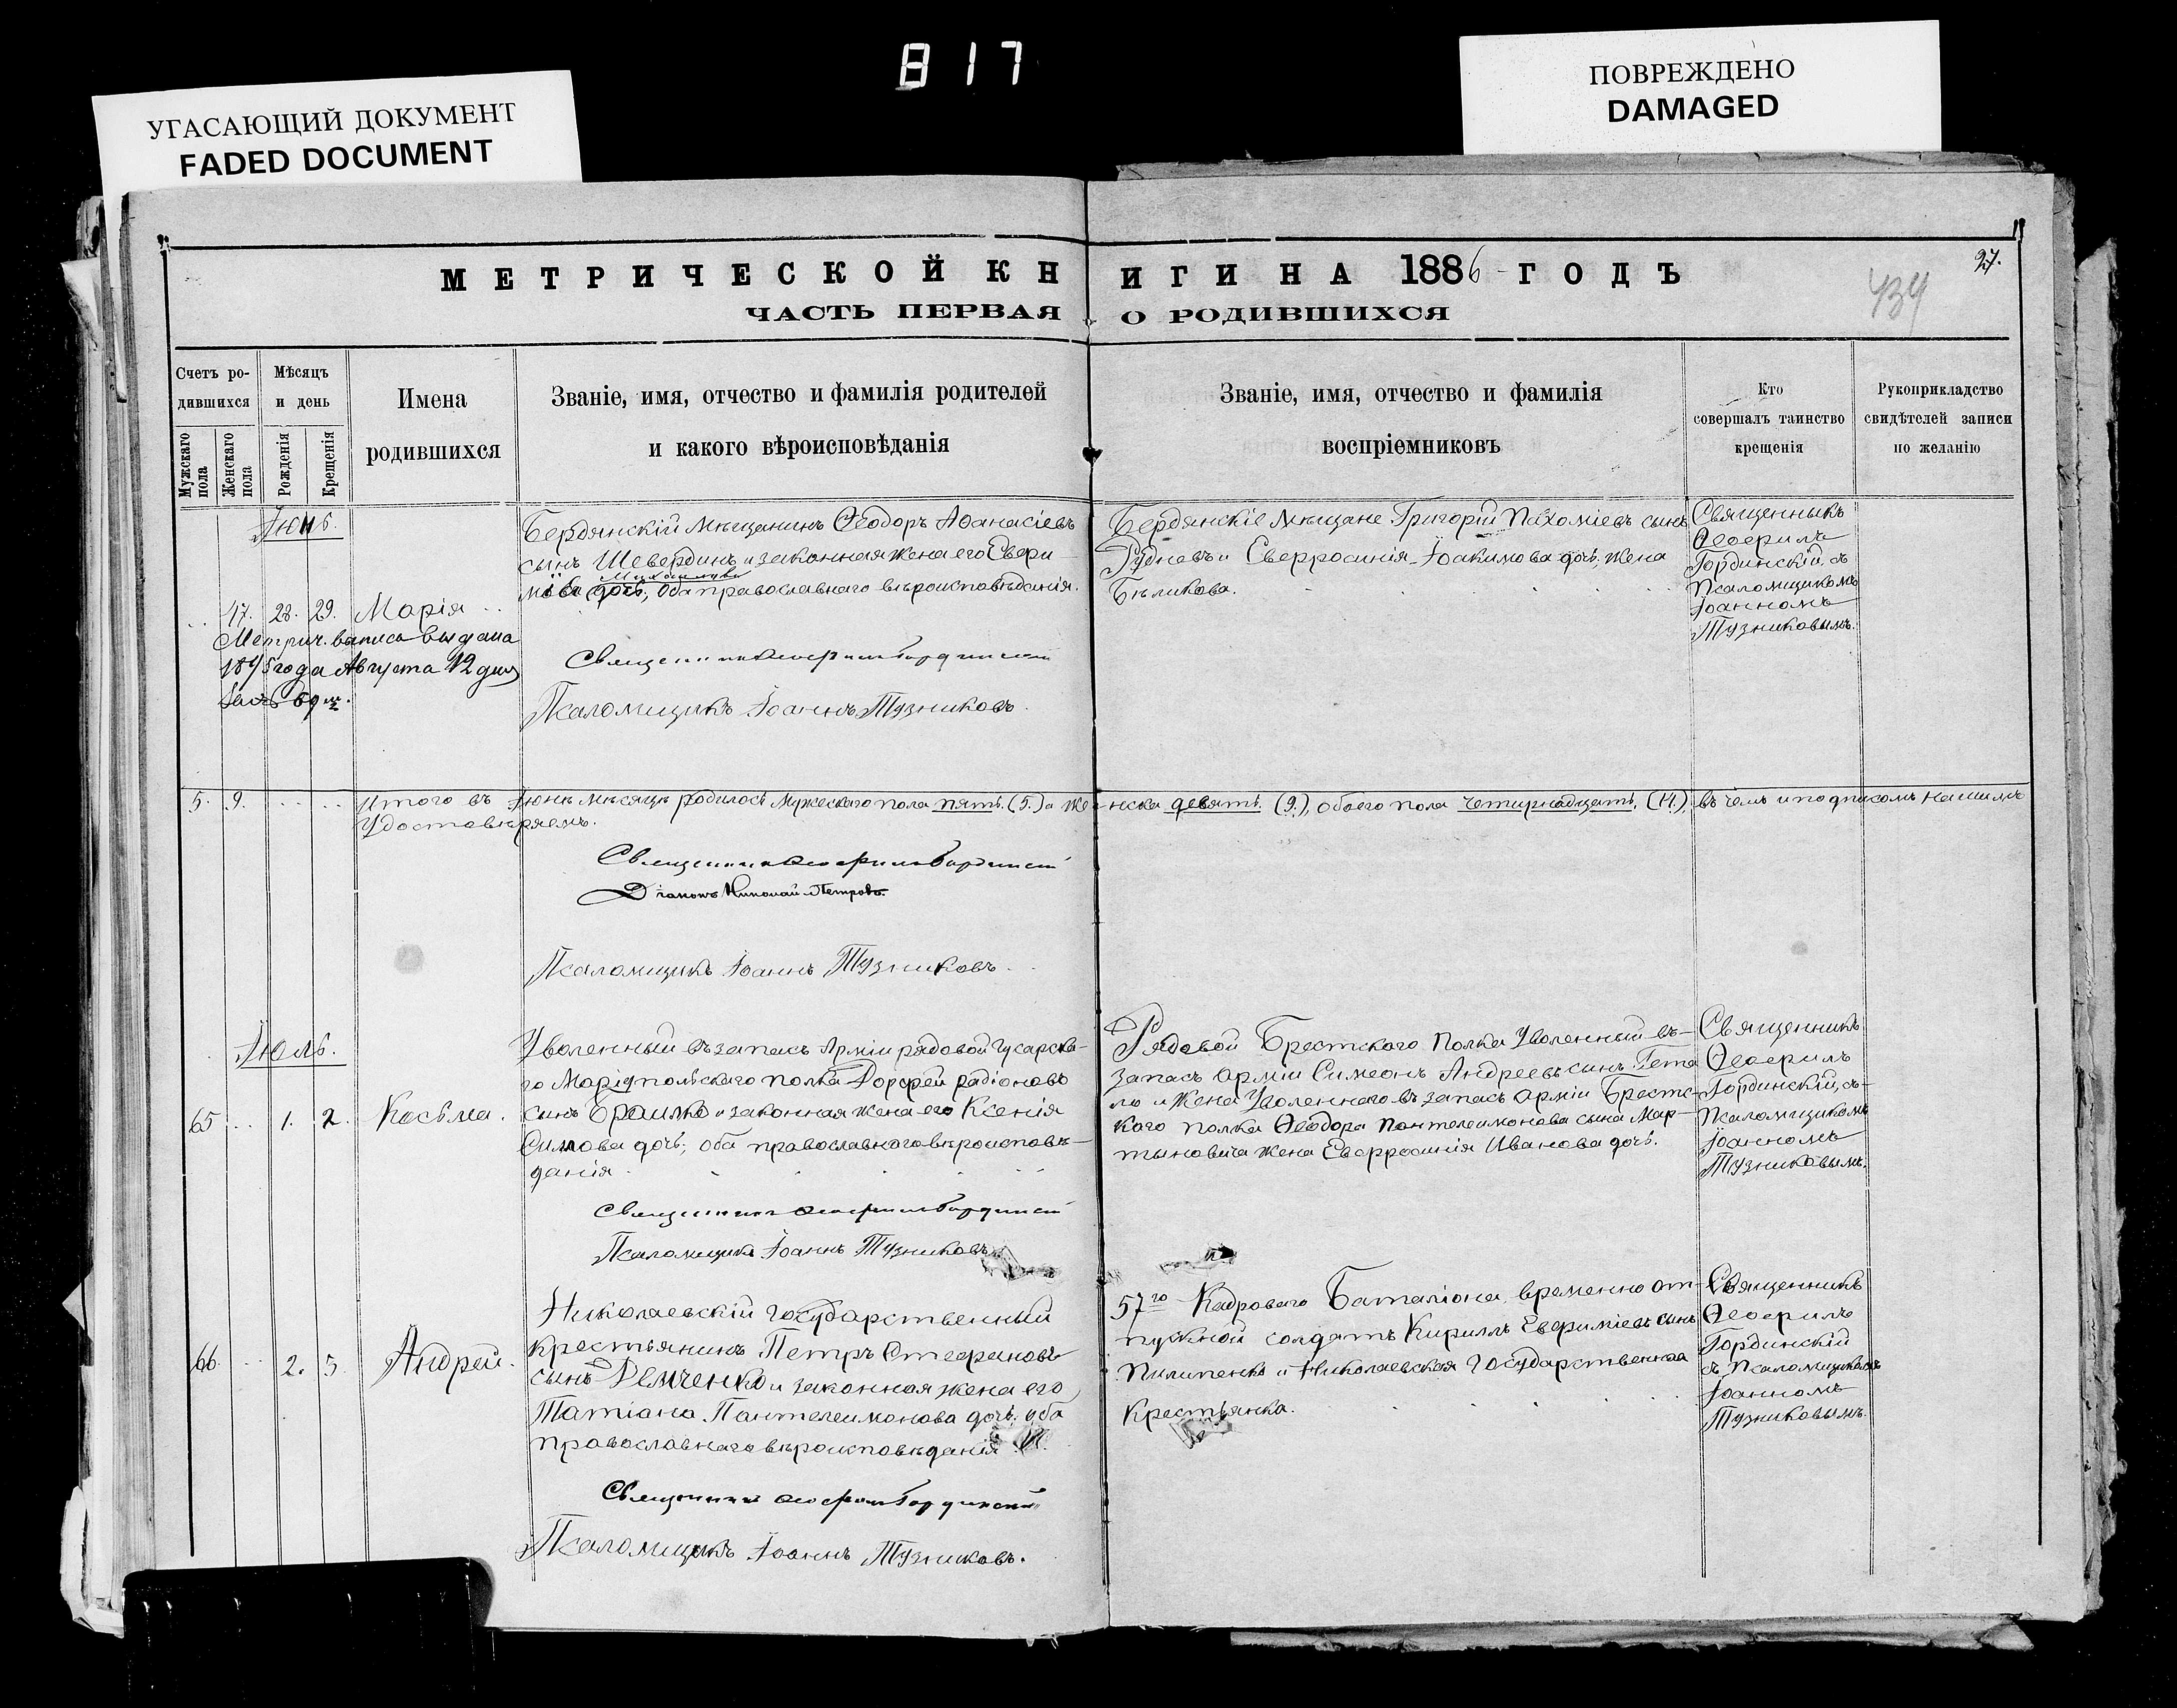 817
УГАСАЮЩИЙ ДОКУМЕНТ
FADED DOCUMENT
ПОВРЕЖДЕНО
DAMAGED
МЕТРИЧЕСКОЙ КНИГИ НА 1886 ГОДЪ
27.
434
ЧАСТЬ ПЕРВАЯ О РОДИВШИХСЯ
Счетъ ро-
дившихся
Мужскаго пола
Женскаго пола
Мѣсяцъ
и день
Рожденія
Крещенія
Имена
родившихся
Званіе, имя, отчество и фамилія родителей
и какого вѣроисповѣданія
Званіе, имя, отчество и фамилія
воспріемниковъ
Кто
совершалъ таинство
крещенія
Рукоприкладство
свидѣтелей записи
по желанію
Іюнь.
47. 28. 29. Марія
Метрич. выпись выдана
года Августа 12 дня
Бердянскій мѣщанинъ Ѳеодоръ Аѳанасіевъ
сынъ Шевердинъ и законная жена его Евфи
мія дочь, оба православнаго вѣроисповѣданія.
Священникъ Ѳеофилъ Гординскій
Псаломщикъ Іоаннъ Тузниковъ.
Бердянскіе мѣщане Григорій Пахоміевъ сынъ
Рудневъ и Евфросинія Іоакимова дочь, жена
Бѣликова.
Священникъ
Ѳеофилъ
Гординскій, съ
Псаломщикомъ
Іоанномъ
Тузниковымъ.
5. 9. Итого въ Іюнѣ мѣсяцѣ родилось мужескаго пола пять. (5.) а женска девять. (9.), обоего пола четырнадцать, (14.), въ чемъ и подписомъ нашимъ
Удостовѣряемъ.
Священникъ Ѳеофилъ Гординскій
Діаконъ Николай Петровъ.
Псаломщикъ Іоаннъ Тузниковъ.
Іюль.
65 1. 2. Косьма.
Уволенный въ запасъ Арміи рядовой Гусарска-
го Маріупольскаго полка Дорофей Радіоновъ
сынъ Ерашко и законная жена его Ксенія
Симова дочь; оба православнаго вѣроисповѣ-
данія
Священникъ Ѳеофилъ Гординскій
Псаломщикъ Іоаннъ Тузниковъ.
Рядовой Брестскаго Полка Уволенный въ-
запасъ арміи Симеонъ Андреевъ сынъ Гета
ло и Жена Уволеннаго въ запасъ арміи Брестс-
каго полка Ѳеодора Пантелеимонова сына Мар-
тыновича жена Евфросинія Иванова дочь.
Священникъ
Ѳеофилъ
Гординскій, съ-
Псаломщикомъ
Іоанномъ
Тузниковымъ.
66. 2. 5. Андрей.
Николаевскій государственный
крестьянинъ Петръ Стефановъ
сынъ Демченко и законная жена его
Татіана Пантелеимонова дочь; оба
православнаго вѣроисповѣданія.
Священникъ Ѳеофилъ Гординскій
Псаломщикъ Іоаннъ Тузниковъ.
57го Кадроваго Баталіона, временно от-
пускной солдатъ Кириллъ Евфиміевъ сынъ
Пилипенко и Николаевская государственная
Крестьянка.
Священникъ
Ѳеофилъ
Гординскій
съ Псаломщикомъ
Іоанномъ
Тузниковымъ.